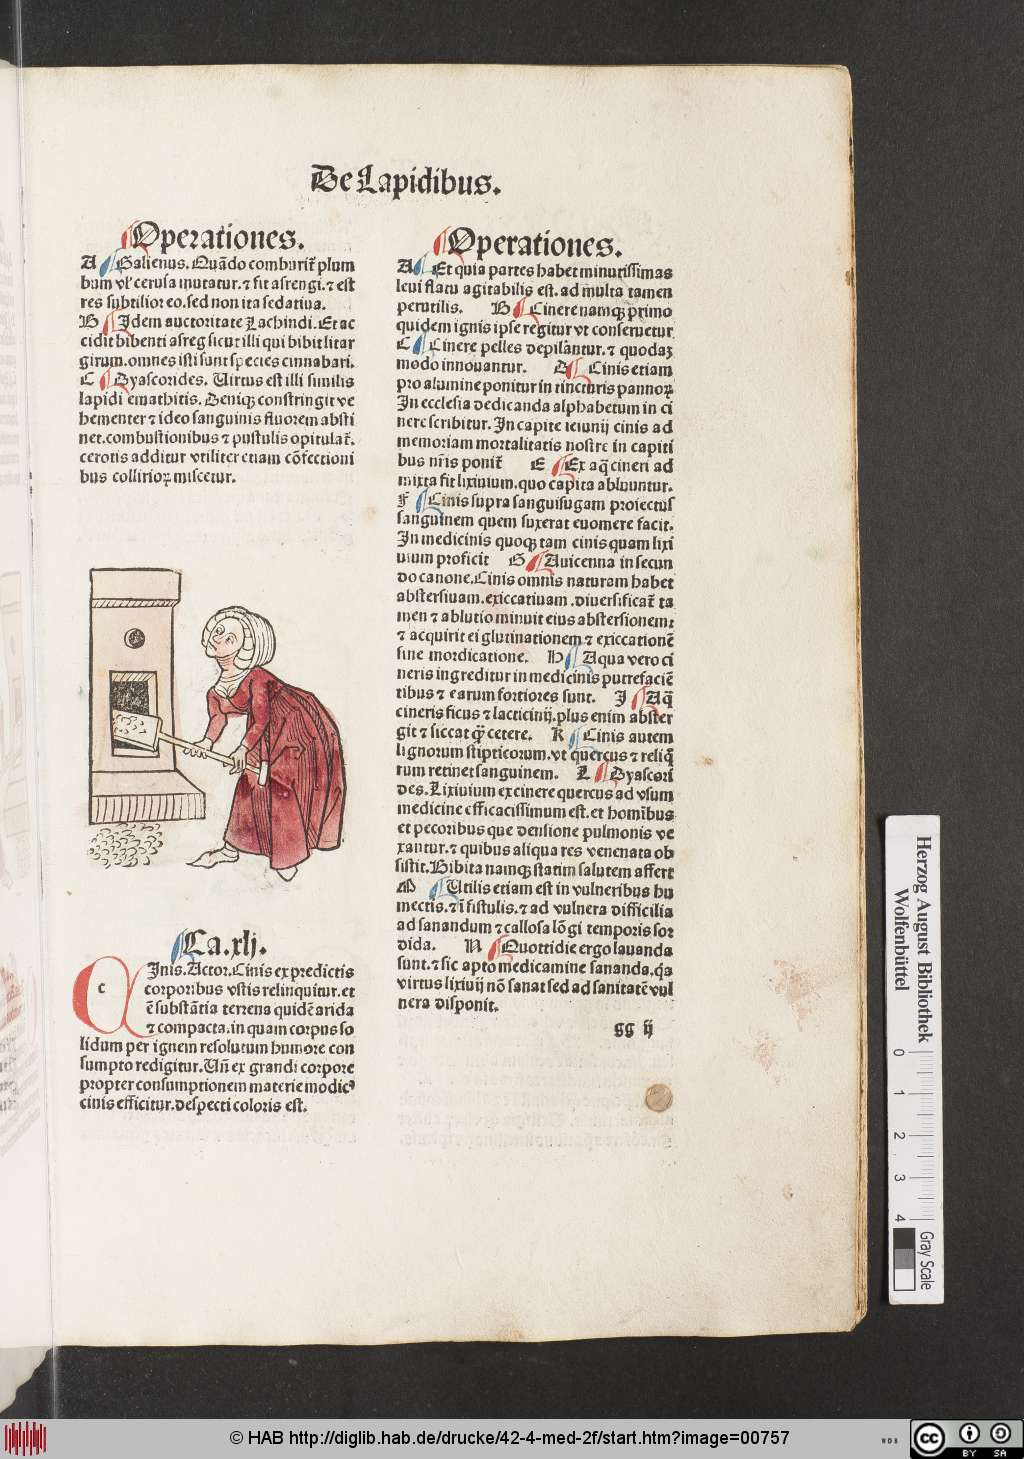 De Lapidibus.
Operationes.
A Galienus. Quādo comburit᷑ plum
bum vl' cerusa mutatur. ⁊ fit asrengi. ⁊ est
res subtilior eo. sed non ita sedatiua.
B Idem auctoritate Zachindi. Et ac
cidit bibenti asreg sicut illi qui bibit litar
girum. omnes isti sunt species cinnabari.
C Dyascorides. Uirtus est illi similis
lapidi emathitis. Deniqꝫ constringit ve
hementer ⁊ ideo sanguinis fluorem absti
net. combustionibus ⁊ pustulis opitulat᷑.
cerotis additur vtiliter etiam cōfectioni
bus collirioꝝ miscetur.
Ca. xlj.
c
Inis. Actor. Cinis ex predictis
corporibus vstis relinquitur. et
ē substātia terrena quidē arida
⁊ compacta. in quam corpus so
lidum per ignem resolutum humore con
sumpto redigitur. Uñ ex grandi corpore
propter consumptionem materie modicꝰ
cinis efficitur. despecti coloris est.
Operationes.
A Et quia partes habet minutissimas
leui flatu agitabilis est. ad multa tamen
perutilis. B Cinere namqꝫ primo
quidem ignis ipse regitur vt conseruetur
C Cinere pelles depilantur. ⁊ quodaꝫ
modo innouantur. D Cinis etiam
pro alumine ponitur in tincturis pannoꝝ
In ecclesia dedicanda alphabetum in ci
nere scribitur. In capite ieiunij cinis ad
memoriam mortalitatis nostre in capiti
bus nr̄is ponit᷑ E Ex aq̄ cineri ad
mixta fit lixiuium. quo capita abluuntur.
F Cinis supra sanguisugam proiectus
sanguinem quem suxerat euomere facit.
In medicinis quoqꝫ tam cinis quam lixi
uium proficit G Auicenna in secun
do canone. Cinis omnis naturam habet
abstersiuam. exiccatiuam. diuersificat᷑ ta
men ⁊ ablutio minuit eius abstersionem:
⁊ acquirit ei glutinationem ⁊ exiccationē
sine mordicatione. H Aqua vero ci
neris ingreditur in medicinis putrefaciē
tibus ⁊ earum fortiores sunt. I Aq̄
cineris ficus ⁊ lacticinij. plus enim abster
git ⁊ siccat q̄ȝ cetere. K Cinis autem
lignorum stipticorum. vt quercus ⁊ reliq̄
rum retinet sanguinem. L Dyascori
des. Lixiuium ex cinere quercus ad vsum
medicine efficacissimum est. et homībus
et pecoribus que densione pulmonis ve
xantur. ⁊ quibus aliqua res venenata ob
sistit. Bibita namqꝫ statim salutem affert
M Utilis etiam est in vulneribus hu
mectis. ⁊ ī fistulis. ⁊ ad vulnera difficilia
ad sanandum ⁊ callosa lōgi temporis sor
dida. N Quottidie ergo lauanda
sunt. ⁊ sic apto medicamine sananda. q̄a
virtus lixiuij nō sanat sed ad sanitatē vul
nera disponit.
gg ij
Herzog August Bibliothek
Wolfenbüttel
0 1 2 3 4
Gray Scale
© HAB http://diglib.hab.de/drucke/42-4-med-2f/start.htm?image=00757
WDB
cc BY SA